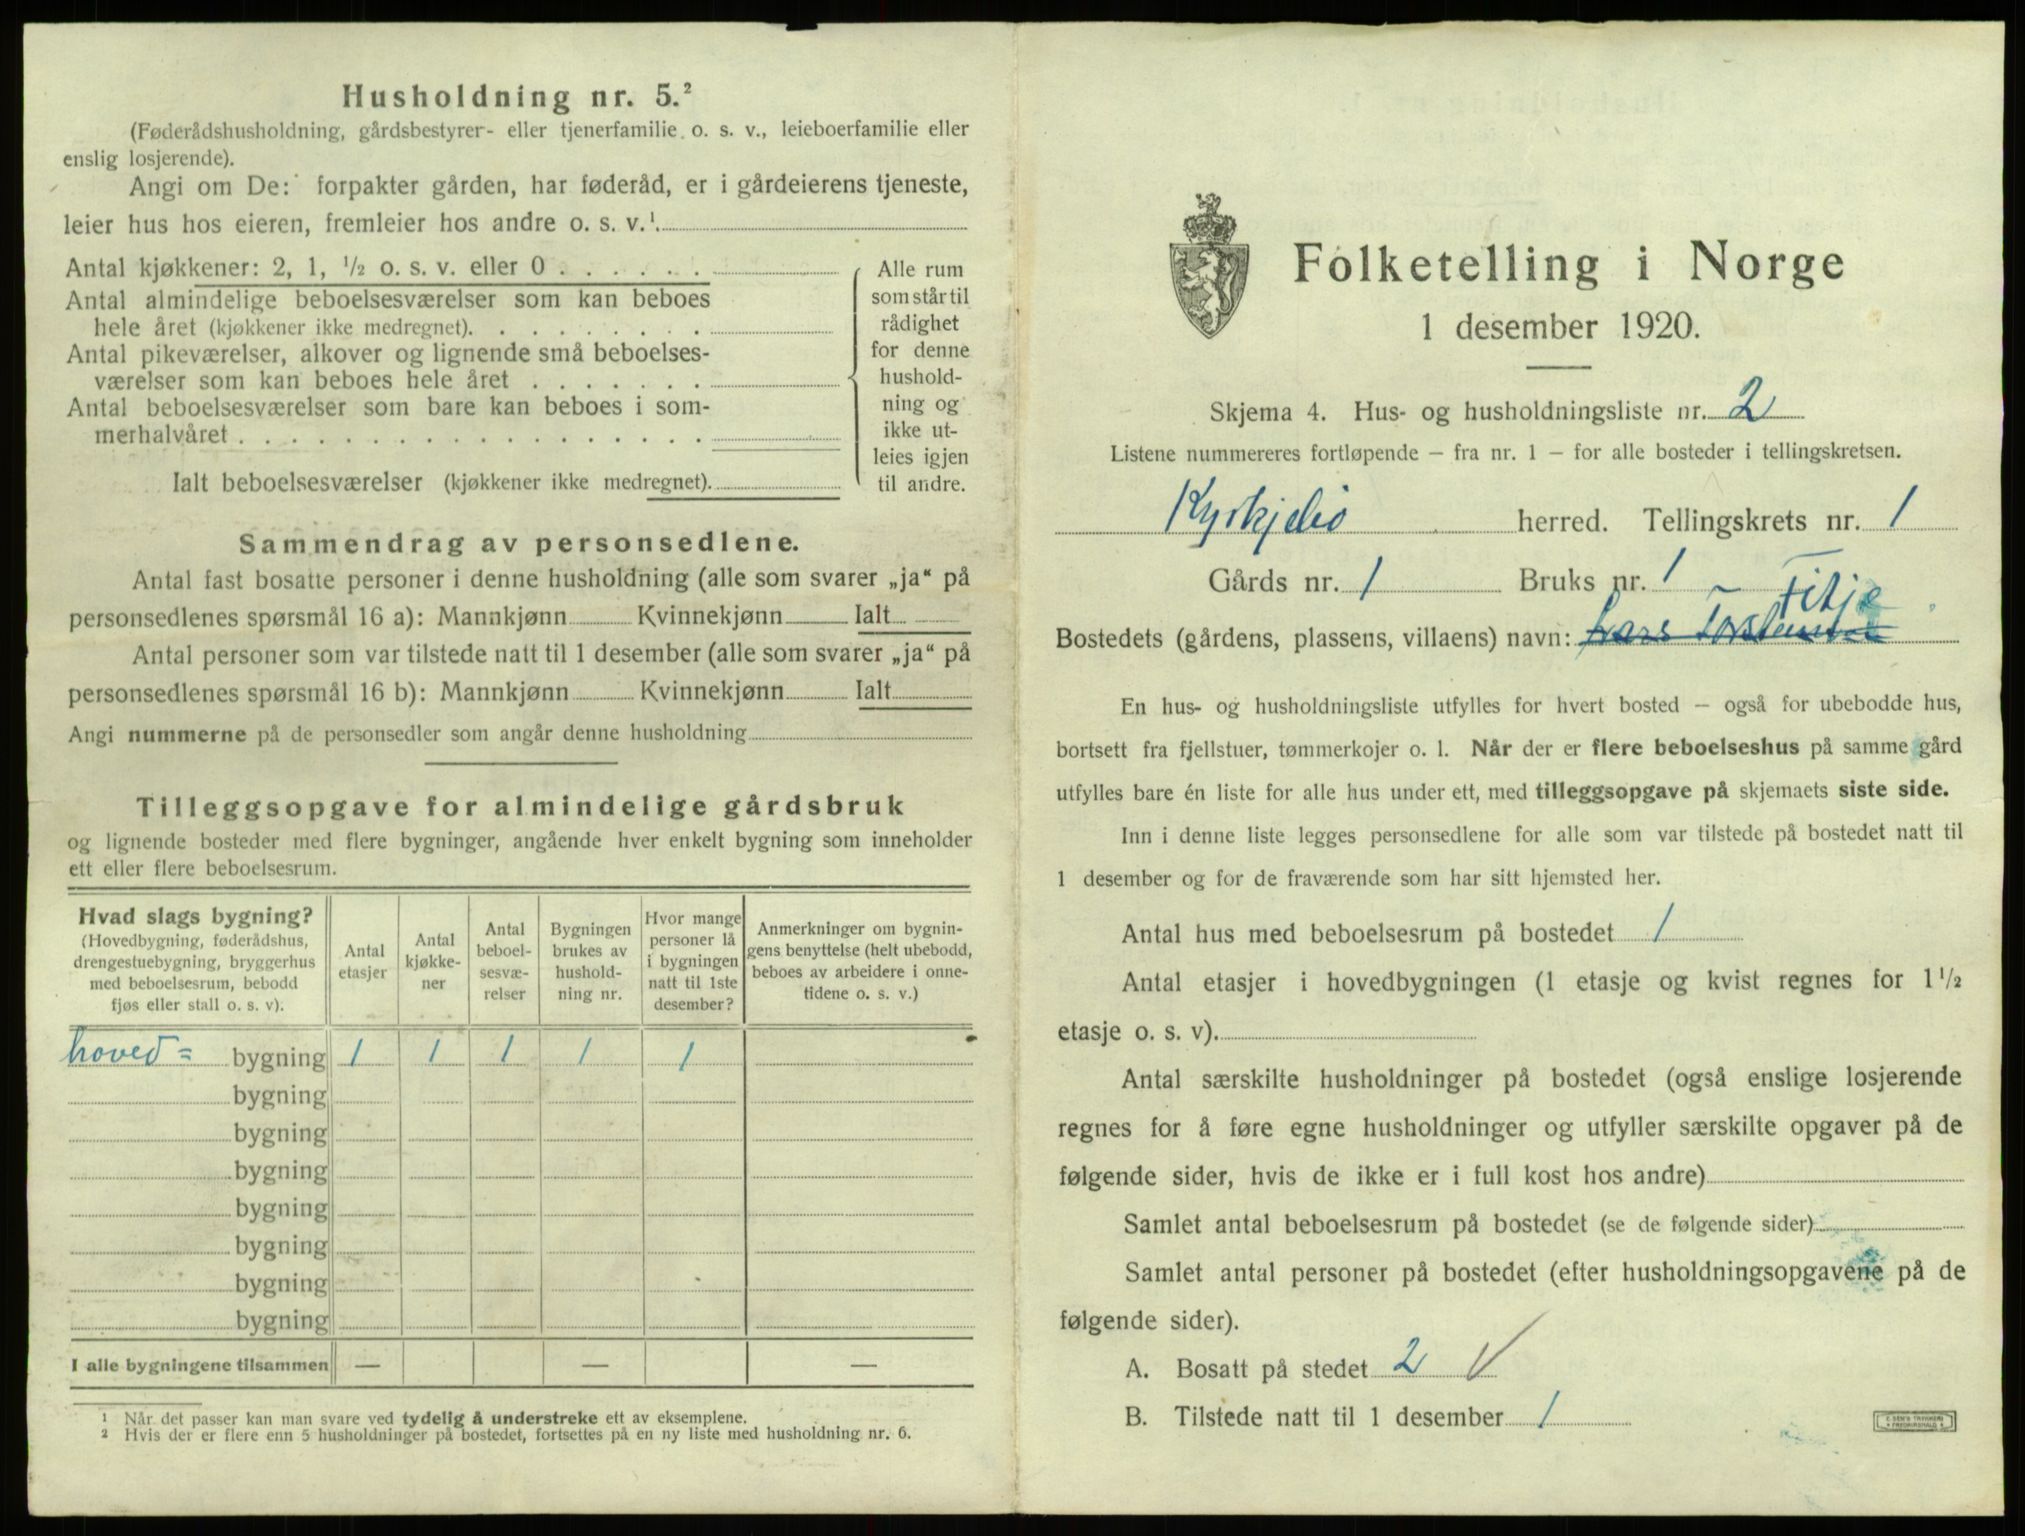 Husholdning nr. 5.²
(Føderådshusholdning, gårdsbestyrer- eller tjenerfamilie o. s. v., leieboerfamilie eller
enslig losjerende).
Angi om De: forpakter gården, har føderåd, er i gårdeierens tjeneste,
leier hus hos eieren, fremleier hos andre o. s. v.¹
Antal kjøkkener: 2, 1, ½ o. s. v. eller 0
Antal almindelige beboelsesværelser som kan beboes
hele året (kjøkkener ikke medregnet).
Antal pikeværelser, alkover og lignende små beboelses-
værelser som kan beboes hele året
Antal beboelsesværelser som bare kan beboes i som-
merhalvåret
Ialt beboelsesværelser (kjøkkener ikke medregnet).
Alle rum
som står til
rådighet
for denne
hushold-
ning og
ikke ut-
leies igjen
til andre.
Sammendrag av personsedlene.
Antal fast bosatte personer i denne husholdning (alle som svarer „ja“ på
personsedlenes spørsmål 16 a): Mannkjønn Kvinnekjønn Ialt
Antal personer som var tilstede natt til 1 desember (alle som svarer „ja“ på
personsedlenes spørsmål 16 b): Mannkjønn Kvinnekjønn Ialt
Angi nummerne på de personsedler som angår denne husholdning
Tilleggsopgave for almindelige gårdsbruk
og lignende bosteder med flere bygninger, angående hver enkelt bygning som inneholder
ett eller flere beboelsesrum.
Hvad slags bygning?
(Hovedbygning, føderådshus,
drengestuebygning, bryggerhus
med beboelsesrum, bebodd
fjøs eller stall o. s. v).
Antal
etasjer
Antal
kjøkke-
ner
Antal
beboel-
sesvæ-
relser
Bygningen
brukes av
hushold-
ning nr.
Hvor mange
personer lå
i bygningen
natt til 1ste
desember?
Anmerkninger om bygnin-
gens benyttelse (helt ubebodd,
beboes av arbeidere i onne-
tidene o. s. v.)
hoved= bygning 1 1 1 1 1
bygning
bygning
bygning
bygning
bygning
bygning
bygning
I alle bygningene tilsammen — — —
¹ Når det passer kan man svare ved tydelig å understreke ett av eksemplene.
² Hvis der er flere enn 5 husholdninger på bostedet, fortsettes på en ny liste med husholdning nr. 6.
Folketelling i Norge
1 desember 1920.
Skjema 4. Hus- og husholdningsliste nr. 2
Listene nummereres fortløpende – fra nr. 1 – for alle bosteder i tellingskretsen.
Kyrkjebø herred. Tellingskrets nr. 1
Gårds nr. 1 Bruks nr. 1
Fitje
Bostedets (gårdens, plassens, villaens) navn: Lars Torstensen
En hus- og husholdningsliste utfylles for hvert bosted – også for ubebodde hus,
bortsett fra fjellstuer, tømmerkojer o. l. Når der er flere beboelseshus på samme gård
utfylles bare én liste for alle hus under ett, med tilleggsopgave på skjemaets siste side.
Inn i denne liste legges personsedlene for alle som var tilstede på bostedet natt til
1 desember og for de fraværende som har sitt hjemsted her.
Antal hus med beboelsesrum på bostedet 1
Antal etasjer i hovedbygningen (1 etasje og kvist regnes for 1½
etasje o. s. v).
Antal særskilte husholdninger på bostedet (også enslige losjerende
regnes for å føre egne husholdninger og utfyller særskilte opgaver på de
følgende sider, hvis de ikke er i full kost hos andre)
Samlet antal beboelsesrum på bostedet (se de følgende sider)
Samlet antal personer på bostedet (efter husholdningsopgavene på de
følgende sider).
A. Bosatt på stedet 2
B. Tilstede natt til 1 desember 1